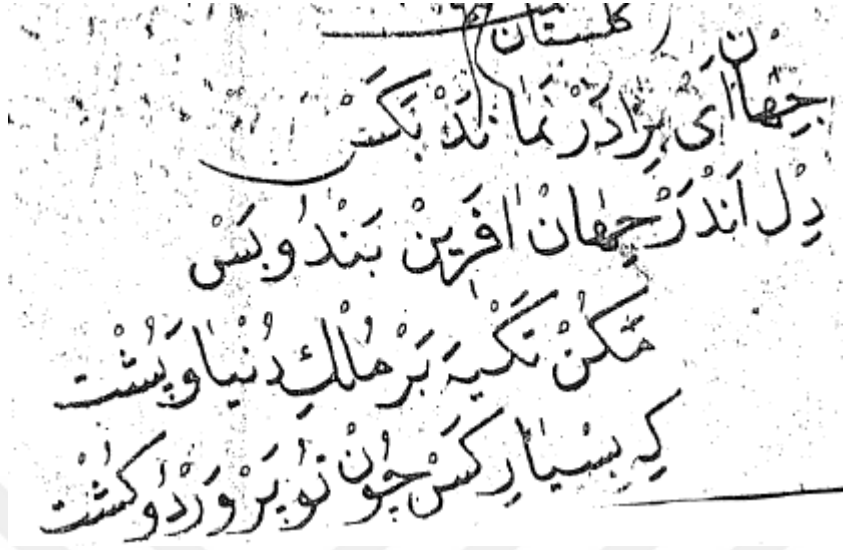 گلستان
جِهَان اَیْ بِرَادَرْ نَمَانَدْ بَکَسْ
دِلْ اَنْدَرْ جِهَانْ اٰفَرِینْ بَنْدُ وبَسْ
مَکُنْ تَکْیَه بَرْ مُلْكِ دُنْیَا وَپُشْت
کِه بِسْیَارِ کَسْ چُونْ تُو پَرْوَرْدُ وکُشْت